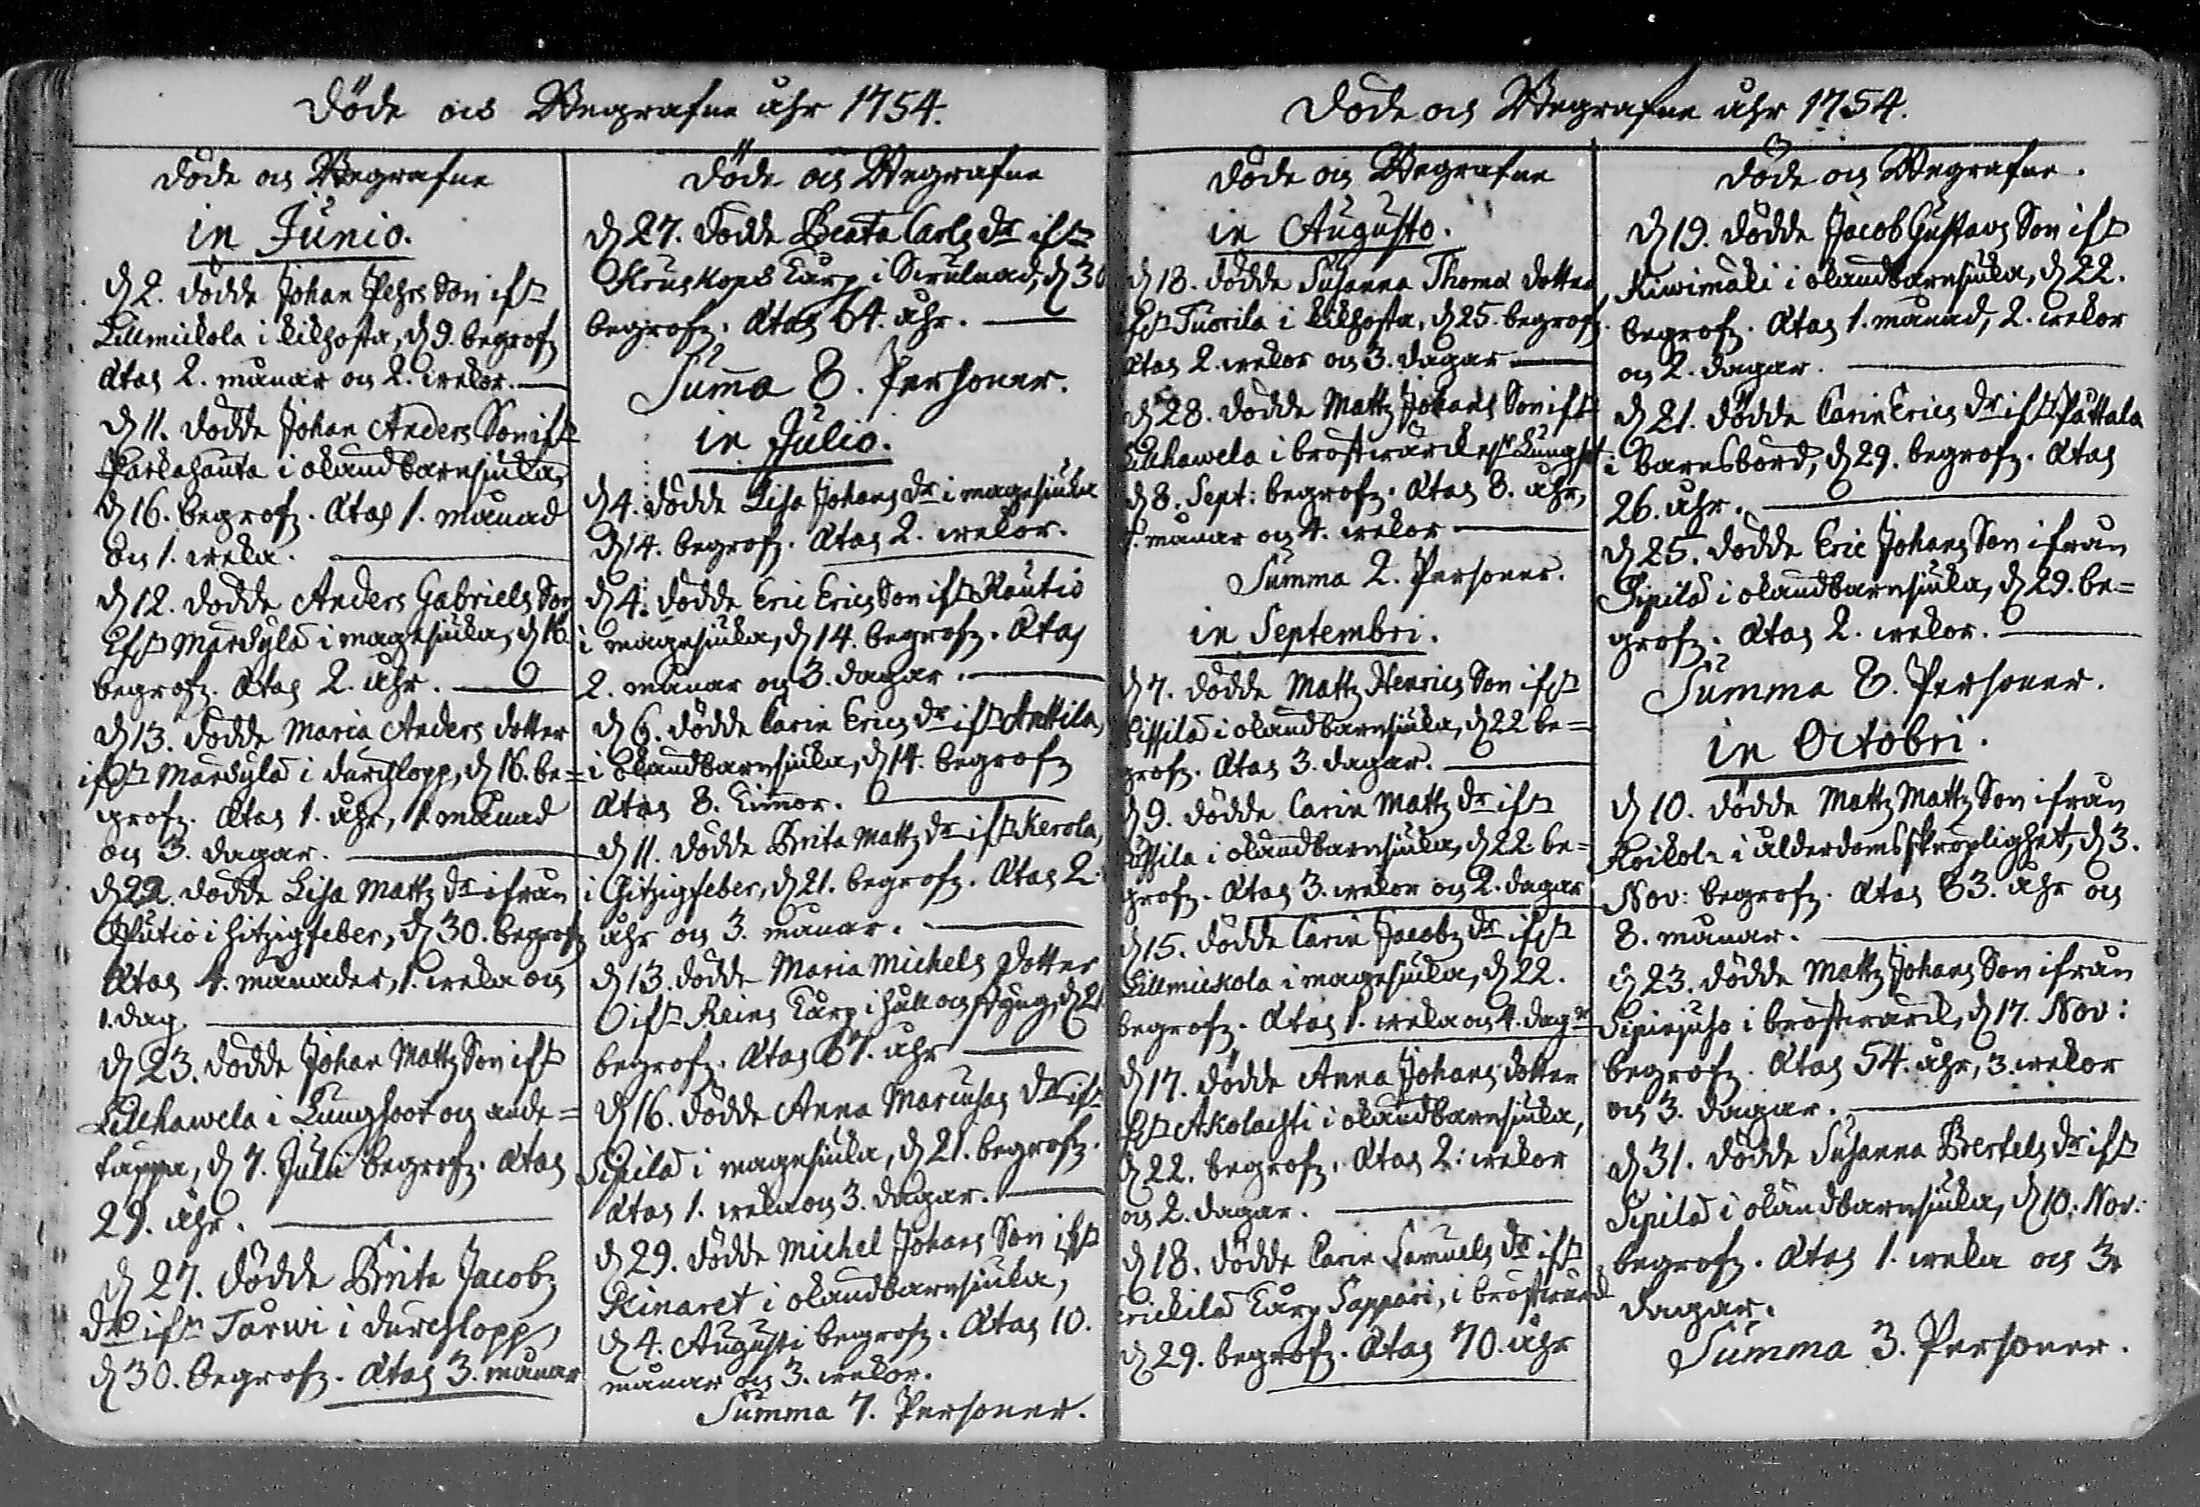 Döde och Begrafne åhr 1754.
Döde och Begrafne
in Junio.
D 2. dödde Johan Pehrs Son ifrn
Lillmickola i kikhosta, d 9. begrofz
Ætas 2. månar och 2. wekor.
D 11. dödde Johan Anders Son ifrn
Parkahanta i okändbarnsiuka,
D 16. begrofz. Ætas 1. månad
och 1. weka.
D 12. dödde Anders Gabriels Son
ifrn Märckylä i magesiuka, d 16.
begrofz. Ætas 2. åhr.
D 13. dödde Maria Anders dotter
ifrn Märckylä i durchlopp, d 16. be=
grofz. Ætas 1. åhr, 1. månad
och 3. dagar.
D 22. dödde Lisa Mattz dr ifrån
i hitzigfeber, d 30. begrofz
Ætas 4. månader, 1. weka och
1. dag
D 23. dödde Johan Mattz Son ifrn
Lillhawela i Lungsoot och ande=
täppa, d 7. Julii begrofz. Ætas
29. åhr.
D 27. dödde Brita Jacobz
dr ifrn Tarwi i durchlopp,
d 30. begrofz. Ætas 3. månar
Döde och Begrafne
D 27. dödde Beata Carlz dr ifrn
Kruskops Torp i Strulnad, d 30
begrofz. Ætas 64. åhr.
Suma 8. Personer.
in Julio.
D 4. dödde Lisa Johans dr i magesiuka
D 14. begrofz. Ætas 2. wekor.
D 4. dödde Eric Erics Son ifrn Rautio
i magesiuka, d 14. begrofz. Ætas
2. månar och 3. dagar.
D 6. dödde Carin Erics dr ifrn Anttila,
i okändbarnsiuka, d 14. begrofz
Ætas 8. timor.
D 11. dödde Brita Mattz dr ifrn Kerola,
i hitzigfeber, d 21. begrofz. Ætas 2.
åhr och 3. månar.
D 13. dödde Maria Michels Dotter
ifrn Reins Torp i håll och styng, d 21
begrofz. Ætas 67. åhr
D 16. dödde Anna Marcusas dr ifrn
Sipilä i magesiuka, d 21. begrofz.
Ætas 1. weka och 3. dagar.
D 29. dödde Michel Johans Son ifrn
Kinaret i okändbarnsiuka,
d 4. Augusti begrofz. Ætas 10.
månar och 3. wekor.
Summa 7. Personer.
Döde och Begrafne åhr 1754.
Döde och Begrafne
in Augusto.
D 18. dödde Susanna Thomæ dotter
ifrn Tuorila i kikhosta, d 25. begrofz.
Ætas 2. wekor och 3. dagar
D 28. dödde Mattz Johans Son ifrn
Lillhawela i bröstwärck och Lungst
d 8. Sept: begrofz. Ætas 8. åhr,
månar och 4. wekor
Summa 2. Personer.
in Septembri.
D 7. dödde Mattz Henrics Son ifrn
i okändbarnsiuka, d 22 be=
grofz. Ætas 3. dagar.
D 9. dödde Carin Mattz dr ifrn
i okändbarnsiuka, d 22. be=
grofz. Ætas 3. wekor och 2. dagar
D 15. dödde Carin Jacobz dr ifrn
Lillmickola i magesiuka, d 22.
begrofz. Ætas 1. weka och 4. dagr
D 17. dödde Anna Johans dotter
ifrn Akolachti i okändbarnsiuka,
D 22. begrofz. Ætas 2. wekor
och 2. dagar.
D 18. dödde Carin Samuels dr ifrn
Torp Sappari, i bröstwärck
d 29. begrofz. Ætas 70. åhr
Döde och Begrafne.
D 19. dödde Jacob Gustavs Son ifrn
Kiwimäki i okändbarnsiuka, d 22.
begrofz. Ætas 1. månad, 2. wekor
och 2. dagar.
D 21. dödde Carin Erics dr ifrn Puttala
i barnsbörd, d 29. begrofz. Ætas
26. åhr.
D 25. dödde Eric Johans Son ifrån
Sipilä i okändbarnsiuka, d 29. be=
grofz. Ætas 2. wekor.
Summa 8. Personer.
in Octobri.
D 10. dödde Mattz Mattz Son ifrån
Koikola i ålderdomsskröplighet, d 3.
Nov: begrofz. Ætas 83. åhr och
8. månar.
D 23. dödde Mattz Johans Son ifrån
i bröstwärck, d 17. Nov:
begrofz. Ætas 54. åhr, 3. wekor
och 3. dagar.
D 31. dödde Susanna Bertels dr ifrn
Sipilä i okändbarnsiuka, d 10. Nov:
begrofz. Ætas 1. weka och 3
dagar.
Summa 3. Personer.